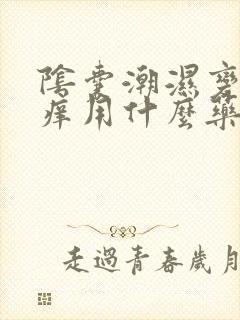 陰囊潮濕瘙
痒用什麼藥
走過青春歲月